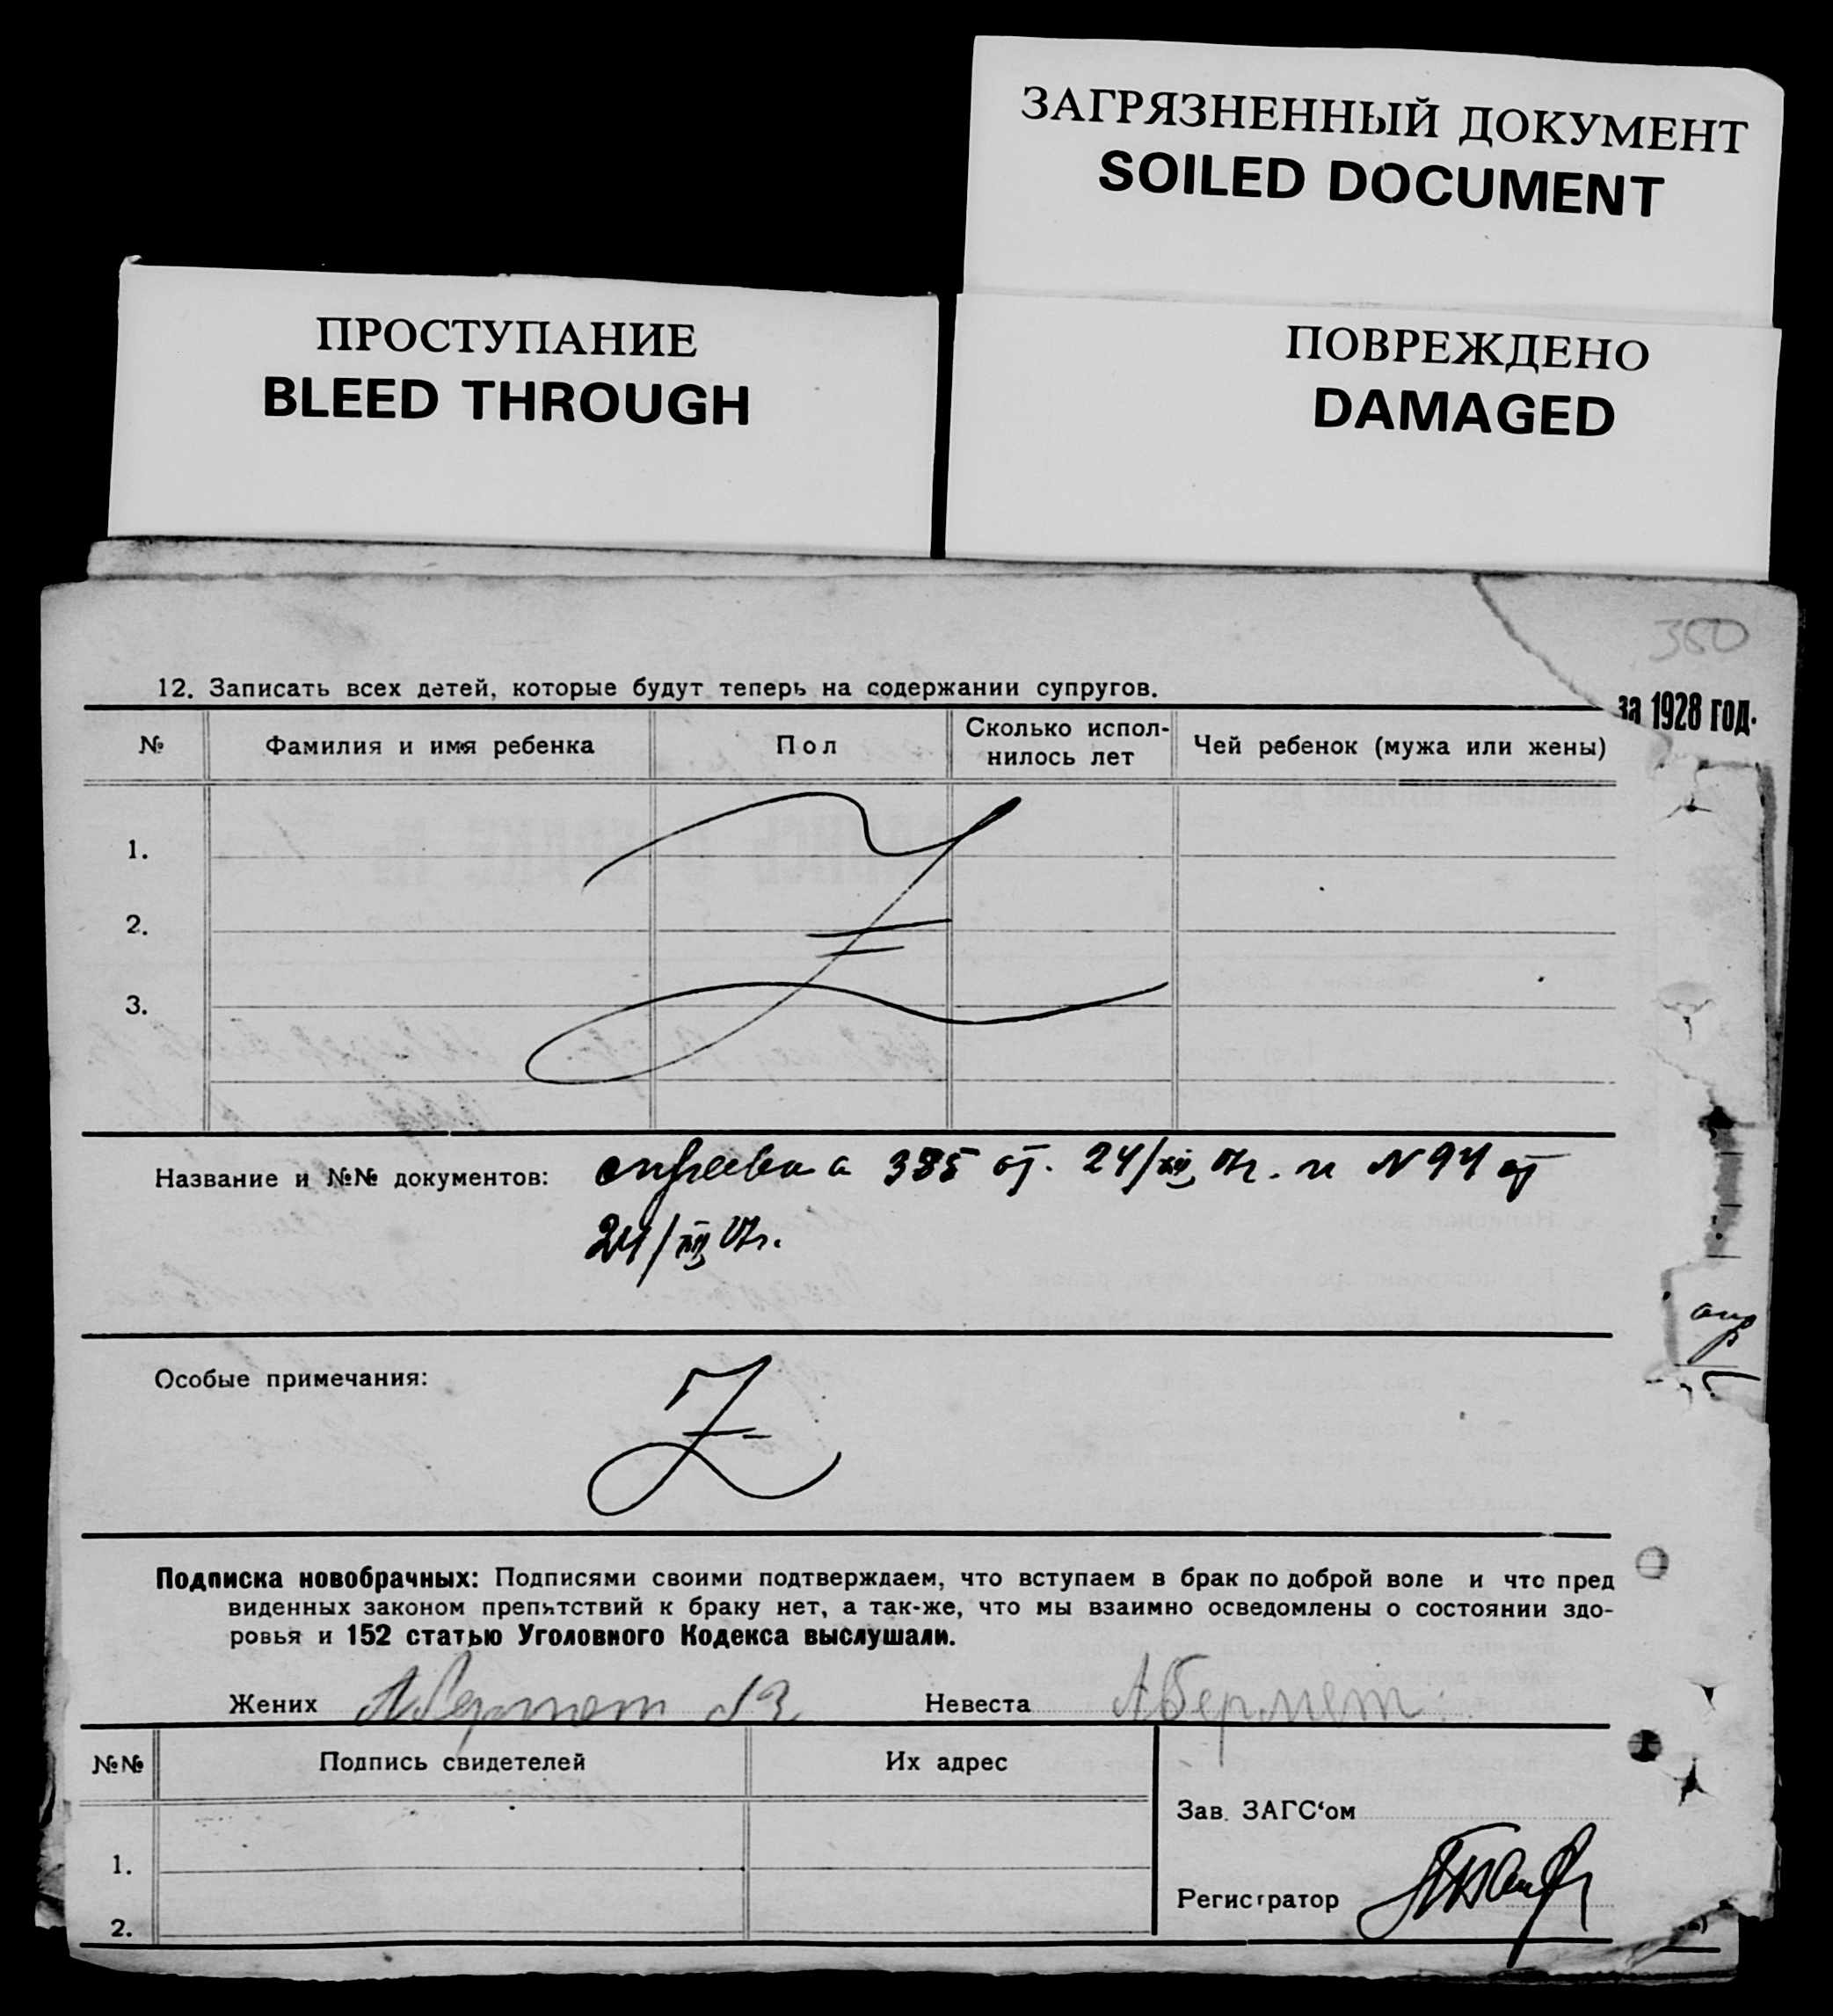 ЗАГРЯЗНЕННЫЙ ДОКУМЕНТ
SOILED DOCUMENT
ПРОСТУПАНИЕ
BLEED THROUGH
ПОВРЕЖДЕНО
DAMAGED
350
за 1928 год.
12. Записать всех детей, которые будут теперь на содержании супругов.
№ Фамилия и имя ребенка Пол Сколько испол-нилось лет Чей ребенок (мужа или жены)
1.
2.
3.
Название и №№ документов: справка 385 от. 24/ и N 94 от
24/
Особые примечания:
Подписка новобрачных: Подписями своими подтверждаем, что вступаем в брак по доброй воле и что пред
виденных законом препятствий к браку нет, а так-же, что мы взаимно осведомлены о состоянии здо-
ровья и 152 статью Уголовного Кодекса выслушали.
Жених Невеста Абермет
№№ Подпись свидетелей Их адрес
Зав. ЗАГС‘ом
1.
Регистратор
2.